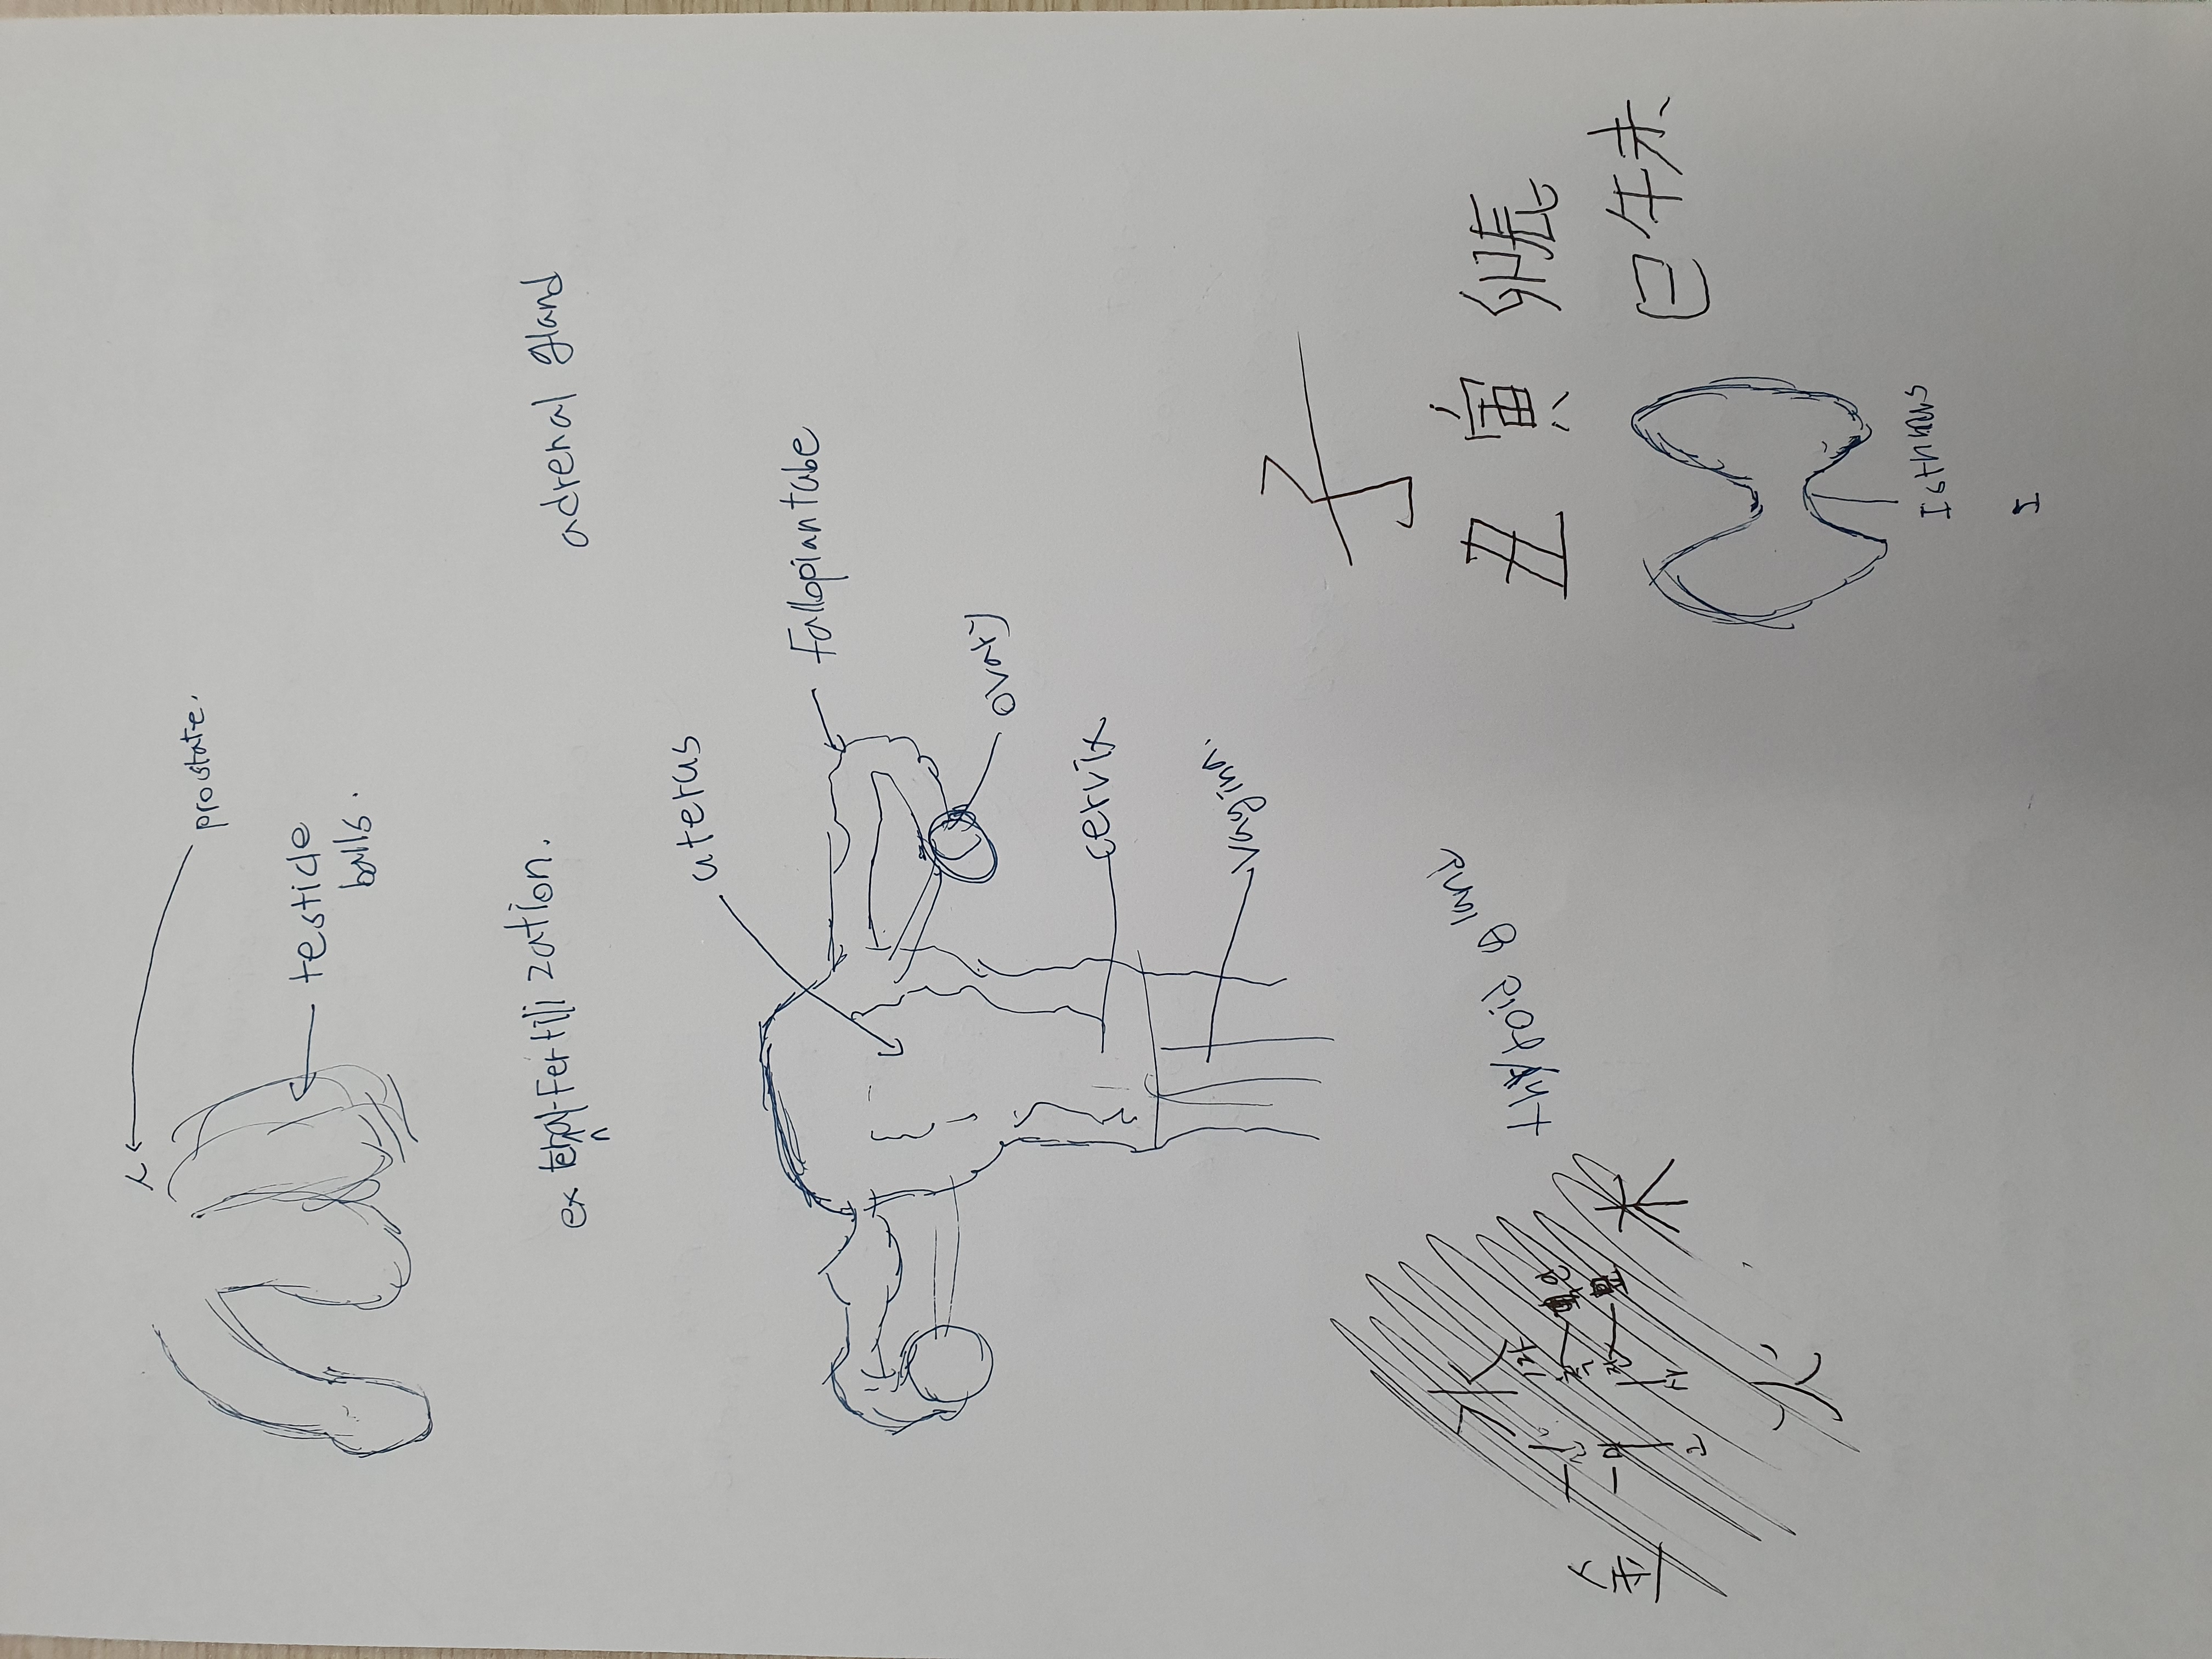 prostate.
testicle
balls.
external Fertilization.
adrenal gland
uterus
Fallopian tube
ovary
cervix
vagina.
thyroid gland
子
丑 寅 卯 辰
巳 午 未
水
金
木
火
Isthmus
I